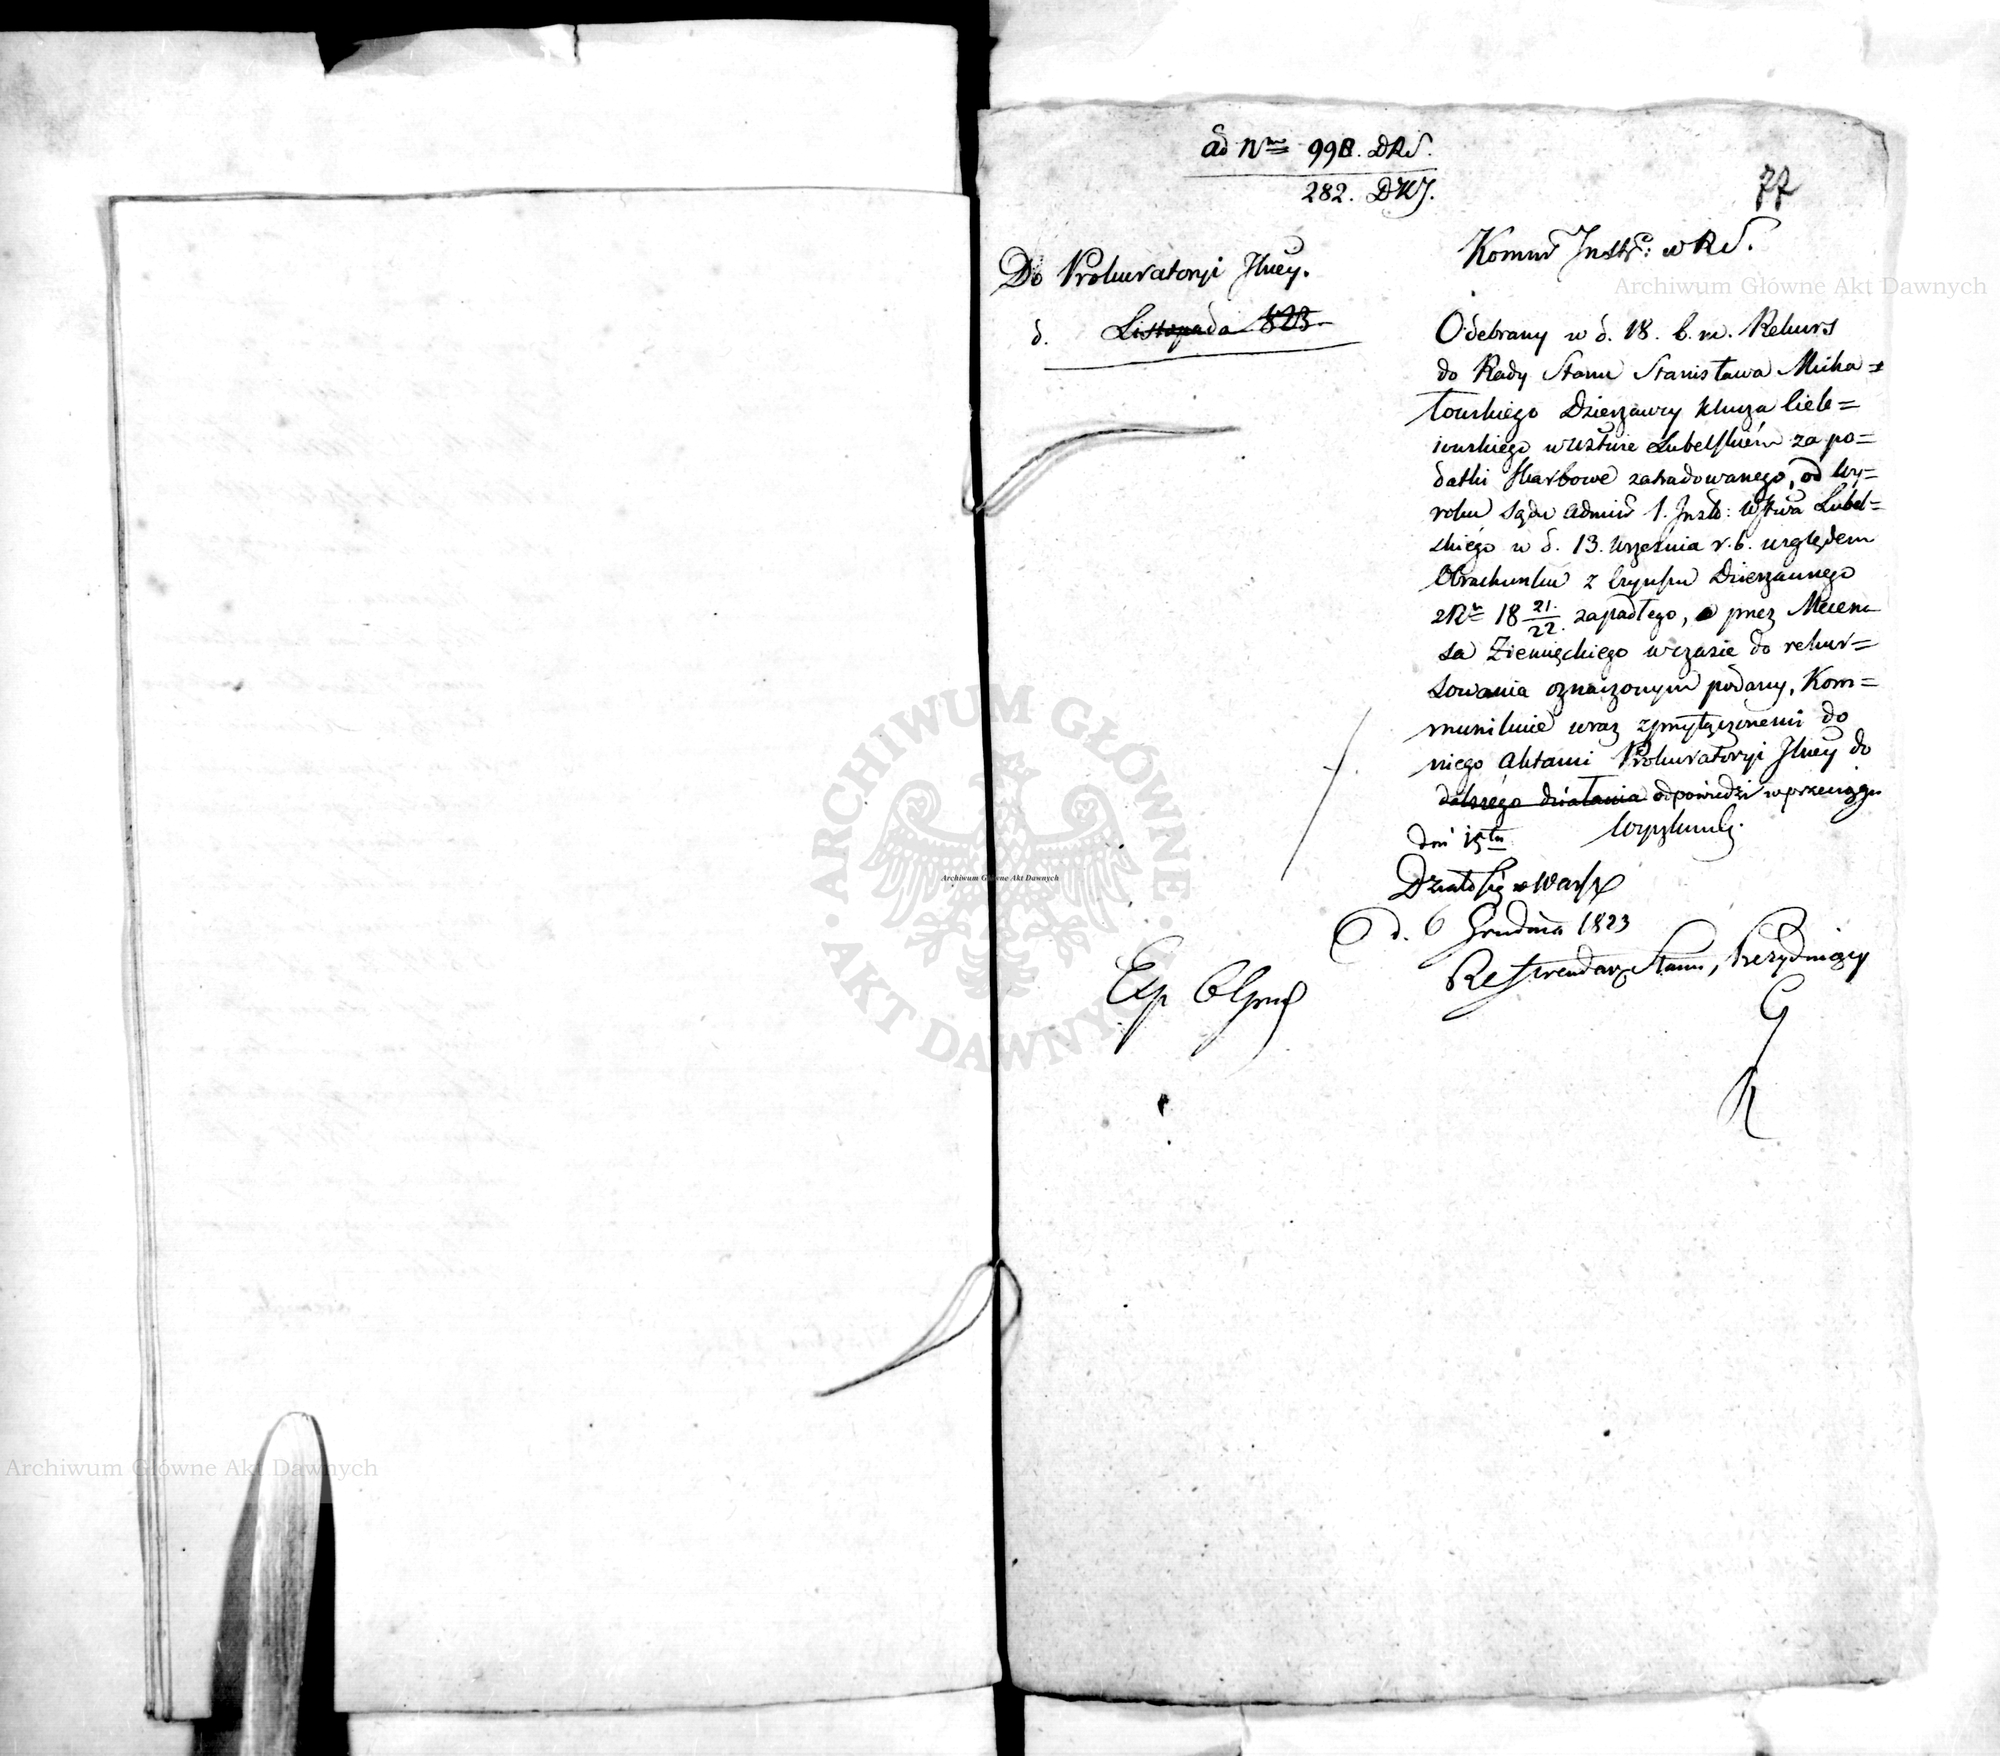 ad Nrm 998. DRS.
282. DKJ.
77
Do Prokuratoryi Jlney.
d. Listopada 823.
Kommis Instr: w RS.
Odebrany w d. 18. b. m. Rekurs
do Rady Stanu Stanisława Micha=
łowskiego Dzierzawcy klucza
w Wsztwie Lubelskiém za po=
datki skarbowe zatradowanego, od Wy=
roku Sądu Admin 1. Inst: Wsztwa Lubel=
skiégo w d. 13. Września r. b. względem
Obrachunku z Czynszu Dzierzawnego
z R. 18 21/22. zapadłego, przez Mecena
sa Ziemięckiego w czasie do rekur=
sowania oznaczonym podany, Kom=
munikuie wraz z przyłączonemi do
niego Aktami Prokuratoryi Jlney do
dalszego działania odpowiedzi w przeciągu
dni 15tu
Działo się w Warsz
d. 6 Grudnia 1823
Referendarz Stanu, Prezyduiący
Archiwum Główne Akt Dawnych
ARCHIWUM GŁÓWNE · AKT DAWNYCH ·
Archiwum Główne Akt Dawnych
Archiwum Główne Akt Dawnych